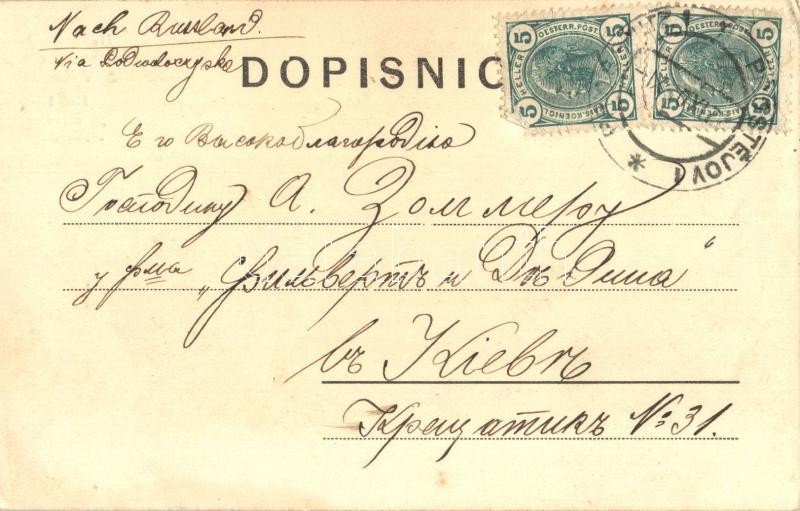 Nach Russland.
via Podwoloczyska
DOPISNIC
5 OESTERR. POST. 5
HELLER
5 KAIS. KOENIGL. 5
5 OESTERR. POST. 5
5 KAIS. KOENIGL. 5
PROSTĚJOV 1
Его Высокоблагородію
Господину А. Зоммеру
у фма „Фильвертъ и Дѣдина“
въ Кіевѣ
Крещатикъ № 31.